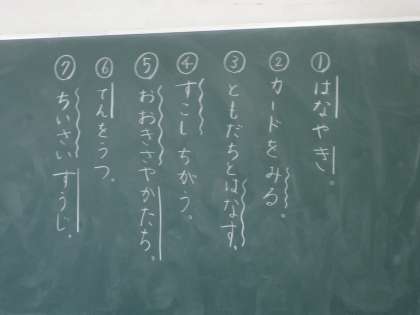 ①はなやき。
②カードをみる。
③ともだちとはなす。
④すこしちがう。
⑤おおきさやかたち。
⑥てんをうつ。
⑦ちいさいすうじ。